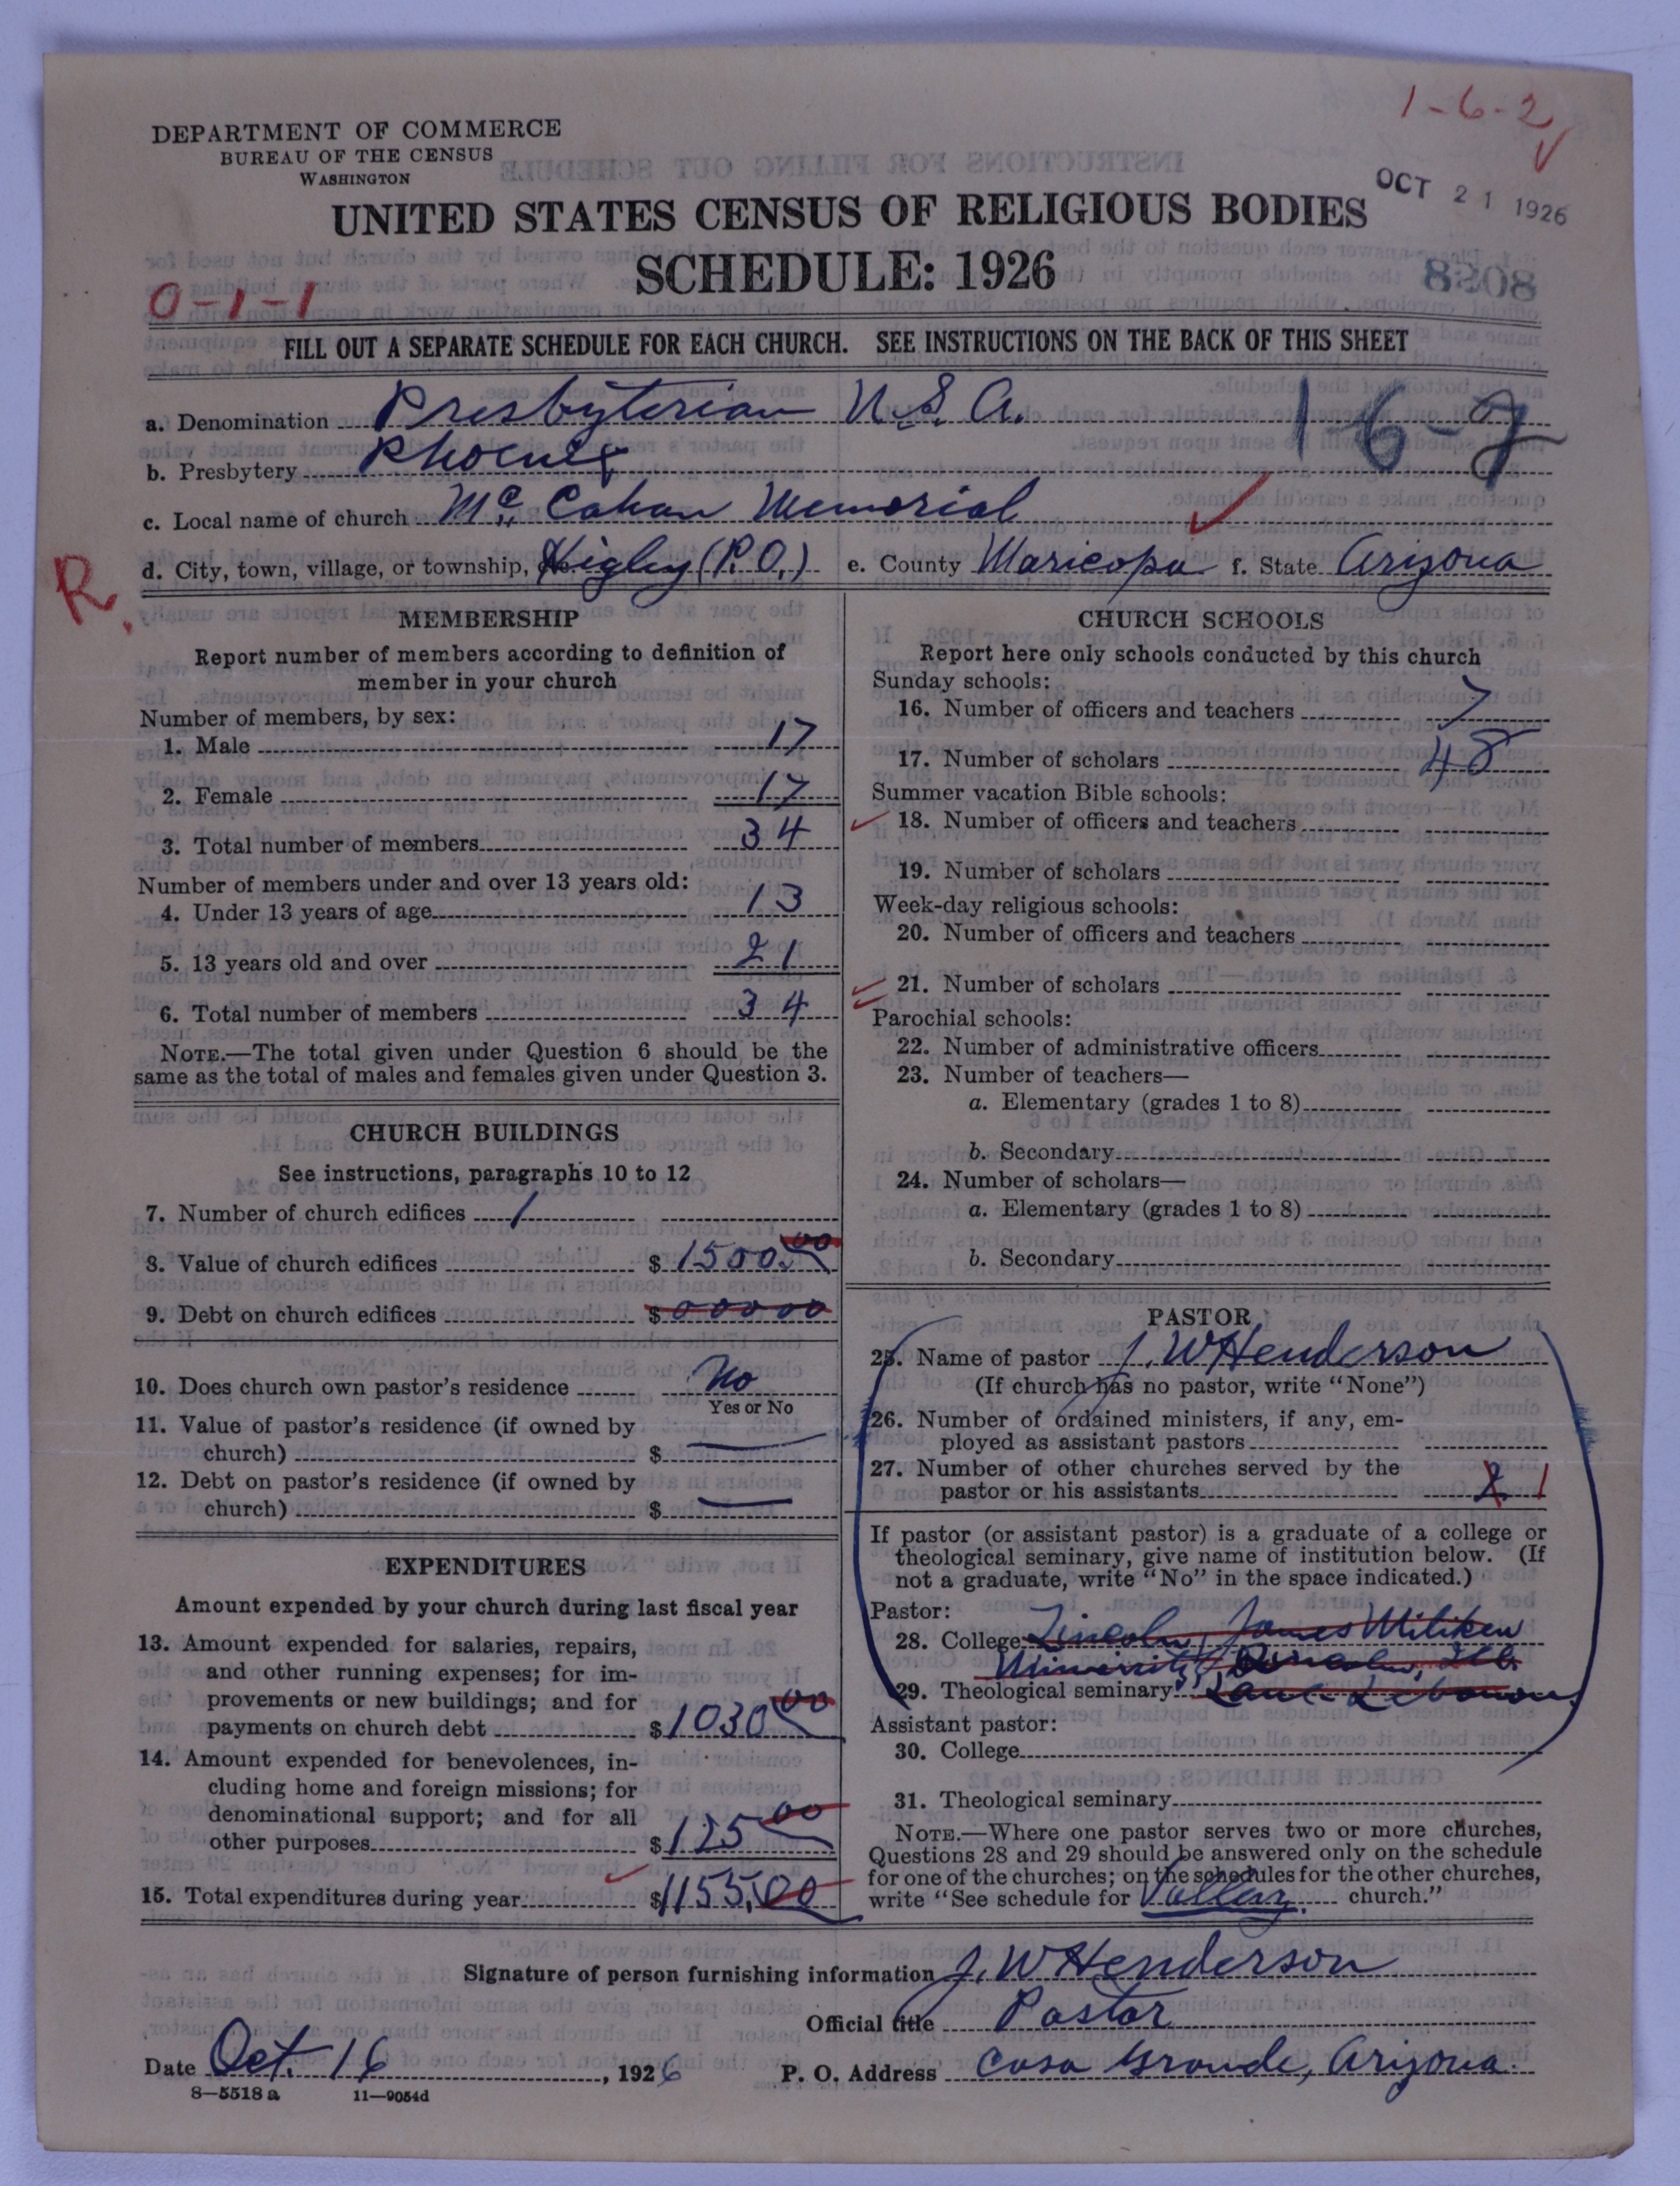 1-6-2
DEPARTMENT OF COMMERCE
BUREAU OF THE CENSUS
WASHINGTON
OCT 21 1926
UNITED STATES CENSUS OF RELIGIOUS BODIES
SCHEDULE: 1926
8038
0-1-1
FILL OUT A SEPARATE SCHEDULE FOR EACH CHURCH. SEE INSTRUCTIONS ON THE BACK OF THIS SHEET
a. Denomination Presbyterian U.S.A.
1-6-2
b. Presbytery Phoenix
c. Local name of church Mc Cahan Memorial
R.
d. City, town, village, or township, etc. Higley (P.O.) e. County Maricopa f. State Arizona
MEMBERSHIP
Report number of members according to definition of
member in your church
Number of members, by sex:
1. Male 17
2. Female 17
3. Total number of members 34
Number of members under and over 13 years old:
4. Under 13 years of age 13
5. 13 years old and over 21
6. Total number of members 34
NOTE.—The total given under Question 6 should be the
same as the total of males and females given under Question 3.
CHURCH BUILDINGS
See instructions, paragraphs 10 to 12
7. Number of church edifices 1
8. Value of church edifices $ 1500.00
9. Debt on church edifices $ 00000
10. Does church own pastor's residence No
Yes or No
11. Value of pastor's residence (if owned by
church) $
12. Debt on pastor's residence (if owned by
church) $
EXPENDITURES
Amount expended by your church during last fiscal year
13. Amount expended for salaries, repairs,
and other running expenses; for im-
provements or new buildings; and for
payments on church debt $1030 00
14. Amount expended for benevolences, in-
cluding home and foreign missions; for
denominational support; and for all
other purposes $125 00
15. Total expenditures during year $1155.00
CHURCH SCHOOLS
Report here only schools conducted by this church
Sunday schools:
16. Number of officers and teachers 7
17. Number of scholars 48
Summer vacation Bible schools:
18. Number of officers and teachers
19. Number of scholars
Week-day religious schools:
20. Number of officers and teachers
21. Number of scholars
Parochial schools:
22. Number of administrative officers
23. Number of teachers—
a. Elementary (grades 1 to 8)
b. Secondary
24. Number of scholars—
a. Elementary (grades 1 to 8)
b. Secondary
PASTOR
25. Name of pastor J. W Henderson
(If church has no pastor, write "None")
26. Number of ordained ministers, if any, em-
ployed as assistant pastors
27. Number of other churches served by the
pastor or his assistants 2 1
If pastor (or assistant pastor) is a graduate of a college or
theological seminary, give name of institution below. (If
not a graduate, write "No" in the space indicated.)
Pastor:
28. College Lincoln, James Miliken
University, Lincoln, Ill.
29. Theological seminary Lane Lebanon
Assistant pastor:
30. College
31. Theological seminary
NOTE.—Where one pastor serves two or more churches,
Questions 28 and 29 should be answered only on the schedule
for one of the churches; on the schedules for the other churches,
write "See schedule for Valley church."
Signature of person furnishing information J. W Henderson
Official title Pastor
Date Oct. 16, 1926 P. O. Address Casa Grande, Arizona.
8—5518 a 11—9054d